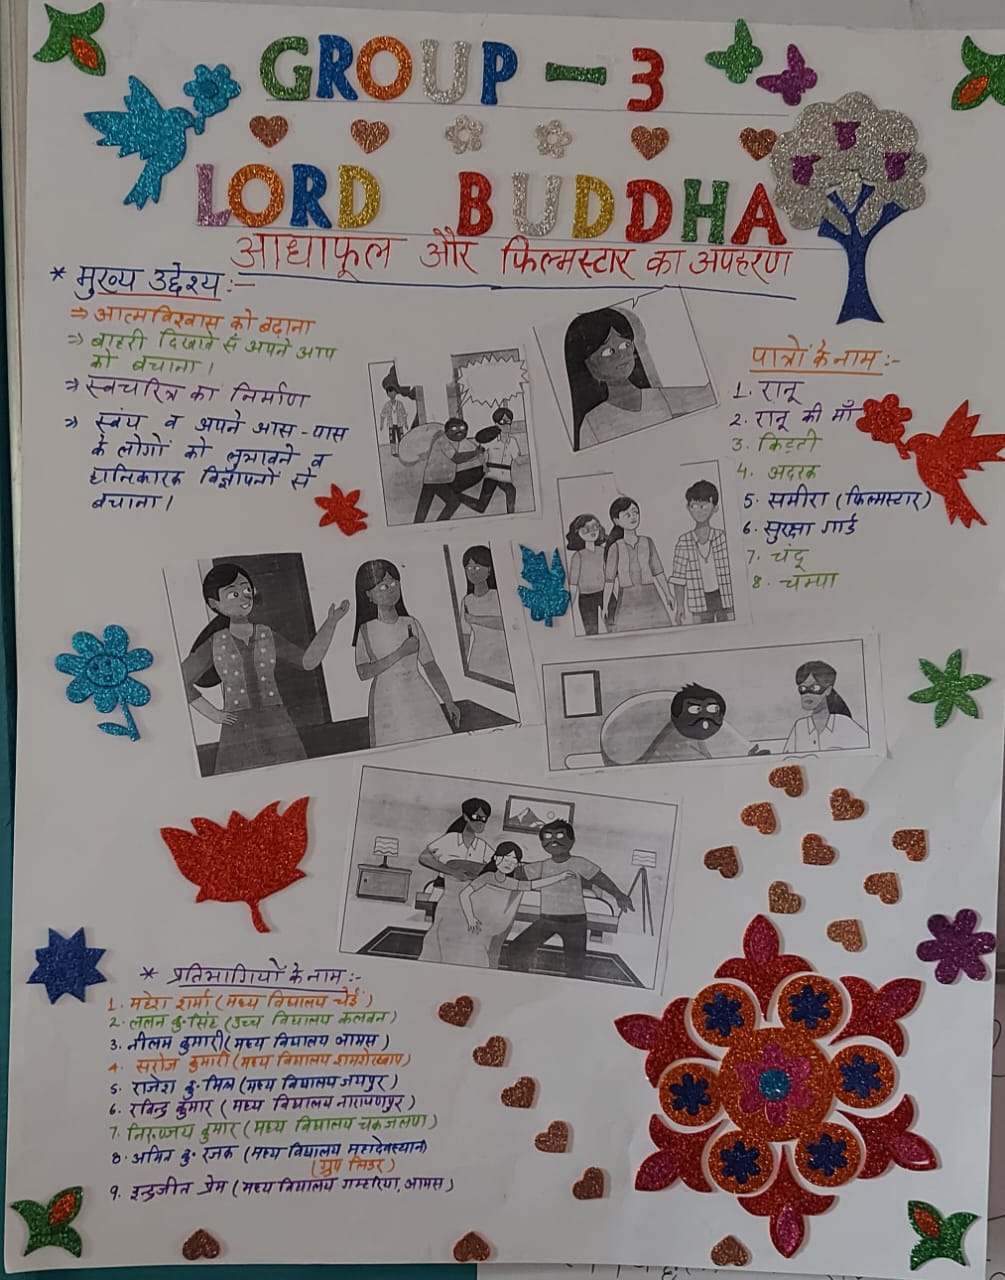 GROUP - 3
LORD BUDDHA
आधाफूल और फिल्मस्टार का अपहरण
* मुख्य उद्देश्य :-
⇒ आत्मविश्वास को बढ़ाना
⇒ बाहरी दिखावे से अपने आप
को बचाना।
⇒ स्वचरित्र का निर्माण
⇒ स्वंय व अपने आस-पास
के लोगों को लुभावने व
हानिकारक विज्ञापनों से
बचाना।
पात्रों के नाम :-
1. रानू
2. रानू की माँ
3. किट्टी
4. अदरक
5. समीरा (फिल्मस्टार)
6. सुरक्षा गार्ड
7. चंदू
8. चम्पा
* प्रतिभागियों के नाम :-
1. महेश शर्मा (मध्य विद्यालय चेई)
2. ललन कु. सिंह (उच्च विद्यालय कलवन)
3. नीलम कुमारी (मध्य विद्यालय आमस)
4. सरोज कुमारी (मध्य विद्यालय
5. राजेश कु. (मध्य विद्यालय जयपुर)
6. रविन्द्र कुमार (मध्य विद्यालय नारायणपुर)
7. कुमार (मध्य विद्यालय
8. अमित कु. रजक (मध्य विद्यालय महादेवस्थान)
(ग्रुप लिडर)
9. इन्द्रजीत प्रेम (मध्य विद्यालय गम्हरिया, आमस)